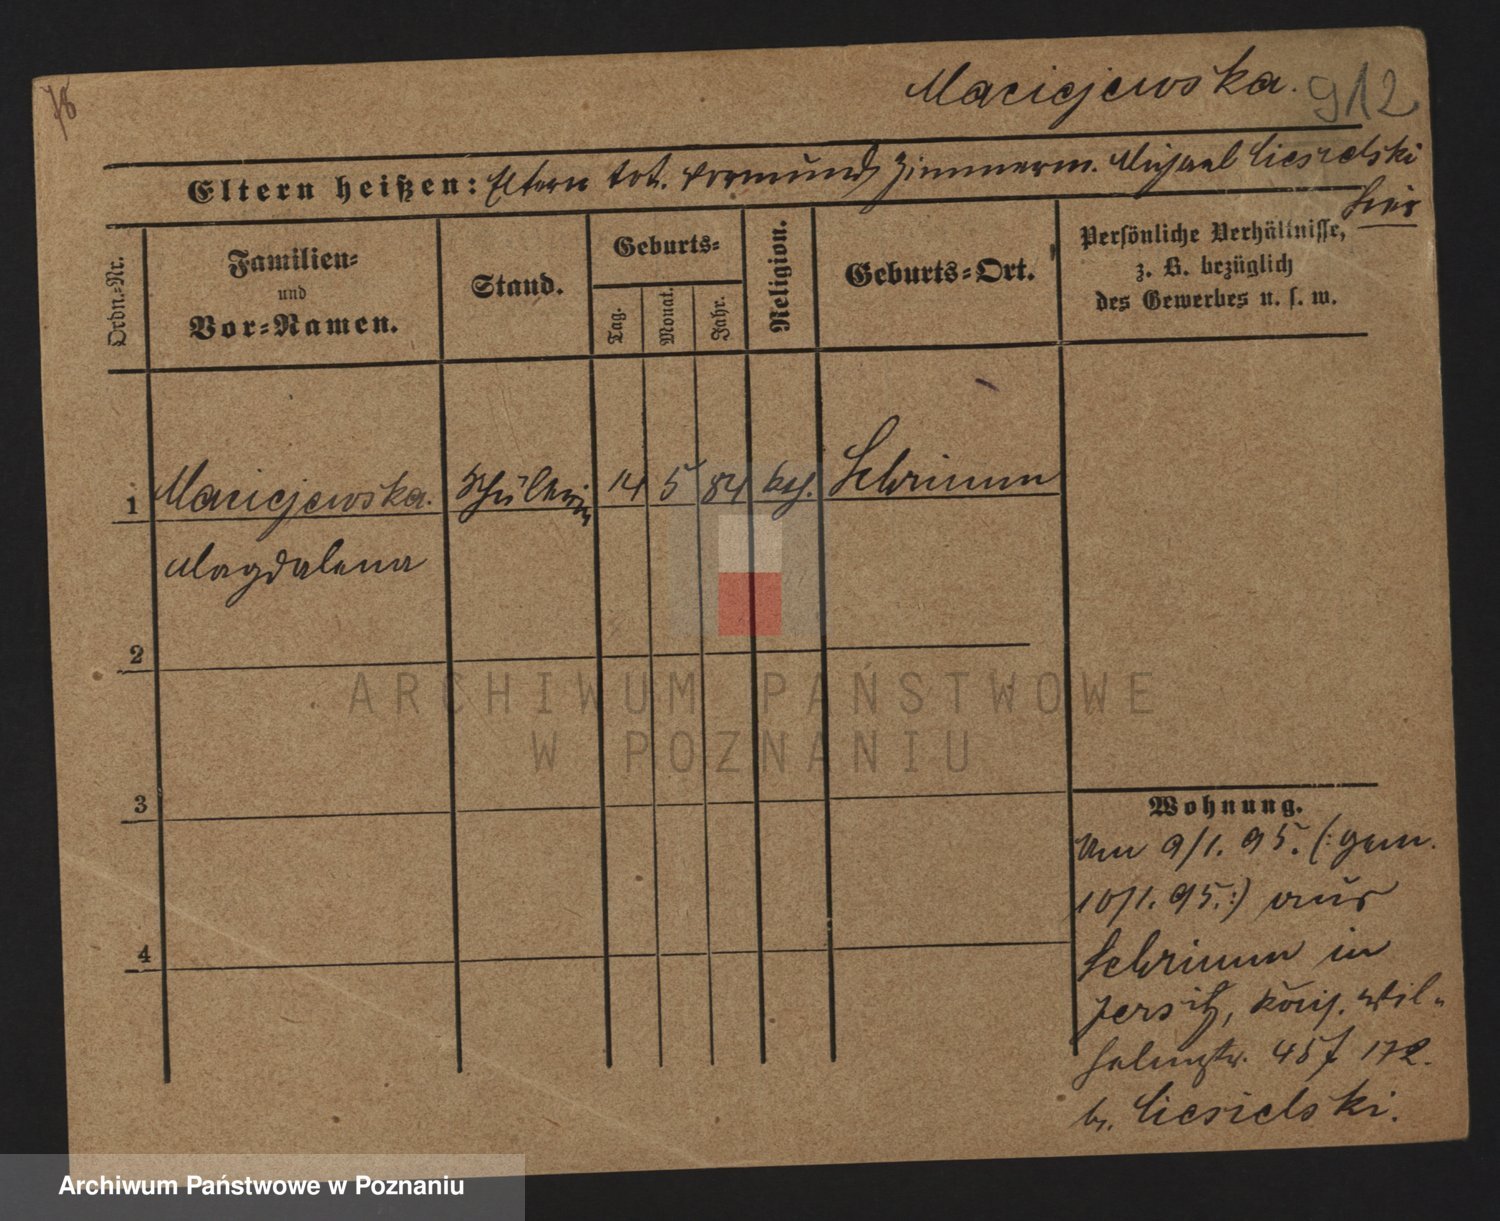 78
Maciejewska. 912
Eltern heißen: Eltern tot. Vormund Zimmerm. Michael Ciesielski
hier
Ordn.-Nr.
Familien-
und
Vor-Namen.
Stand.
Geburts-
Tag.
Monat.
Jahr.
Religion.
Geburts-Ort.
Persönliche Verhältnisse,
z. B. bezüglich
des Gewerbes u. s. w.
1 Maciejewska. Schülerin 14 5 84 kth. Schrimm
Magdalena
2
3
4
Wohnung.
Am 9/1. 95. (: gem.
10/1. 95. :) aus
Schrimm in
Jersitz, Wil-
helmstr.
b. Ciesielski.
ARCHIWUM PAŃSTWOWE
W POZNANIU
Archiwum Państwowe w Poznaniu